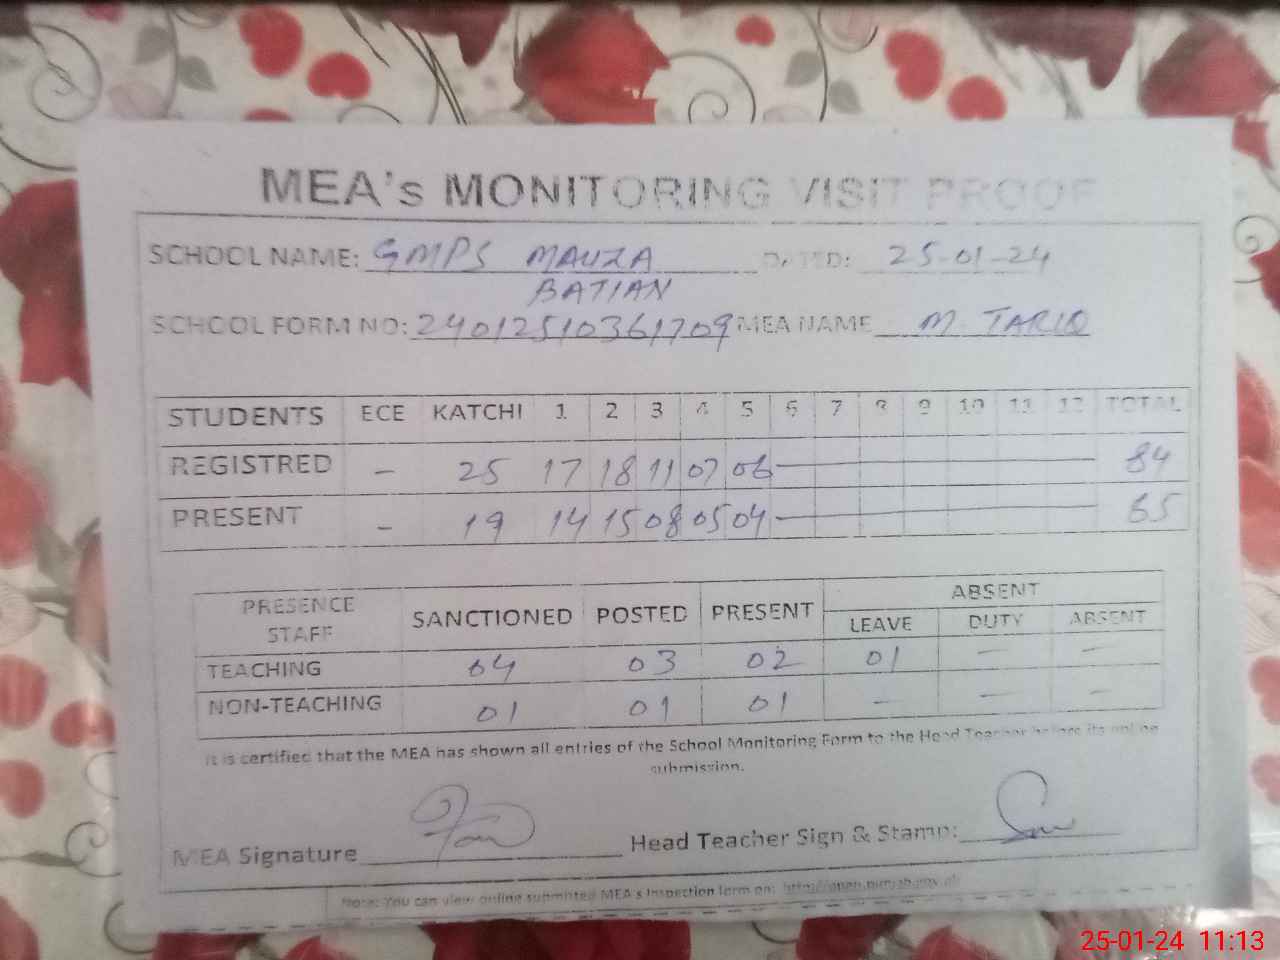 MEA's MONITORING VISIT PROOF
SCHOOL NAME: GMPS MAUZA DATED: 25-01-24
BATIAN
SCHOOL FORM NO: 24012510361709 MEA NAME M. TARIQ
STUDENTS ECE KATCHI 1 2 3 4 5 6 7 8 9 10 11 12 TOTAL
REGISTRED - 25 17 18 11 07 06 84
PRESENT - 19 14 15 08 05 04 65
PRESENCE STAFF SANCTIONED POSTED PRESENT ABSENT
LEAVE DUTY ABSENT
TEACHING 04 03 02 01 - -
NON-TEACHING 01 01 01 - - -
It is certified that the MEA has shown all entries of the School Monitoring Form to the Head Teacher before its online
submission.
MEA Signature Head Teacher Sign & Stamp:
Note: You can view online submitted MEA's Inspection form on:
25-01-24 11:13